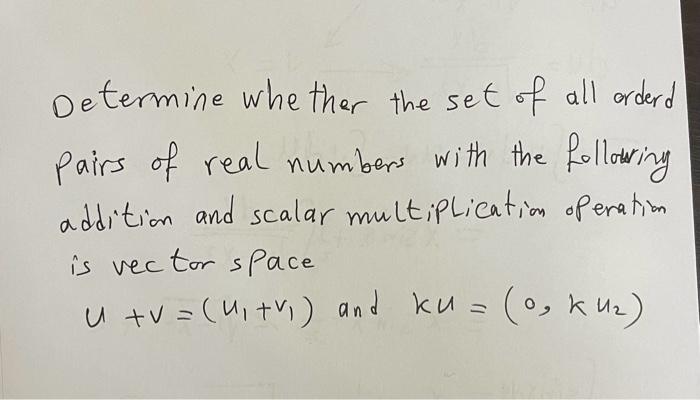 Determine whether the set of all orderd
Pairs of real numbers with the following
addition and scalar multiplication operation
is vector space
u + v = (u₁ + v₁) and ku = (0, k u₂)